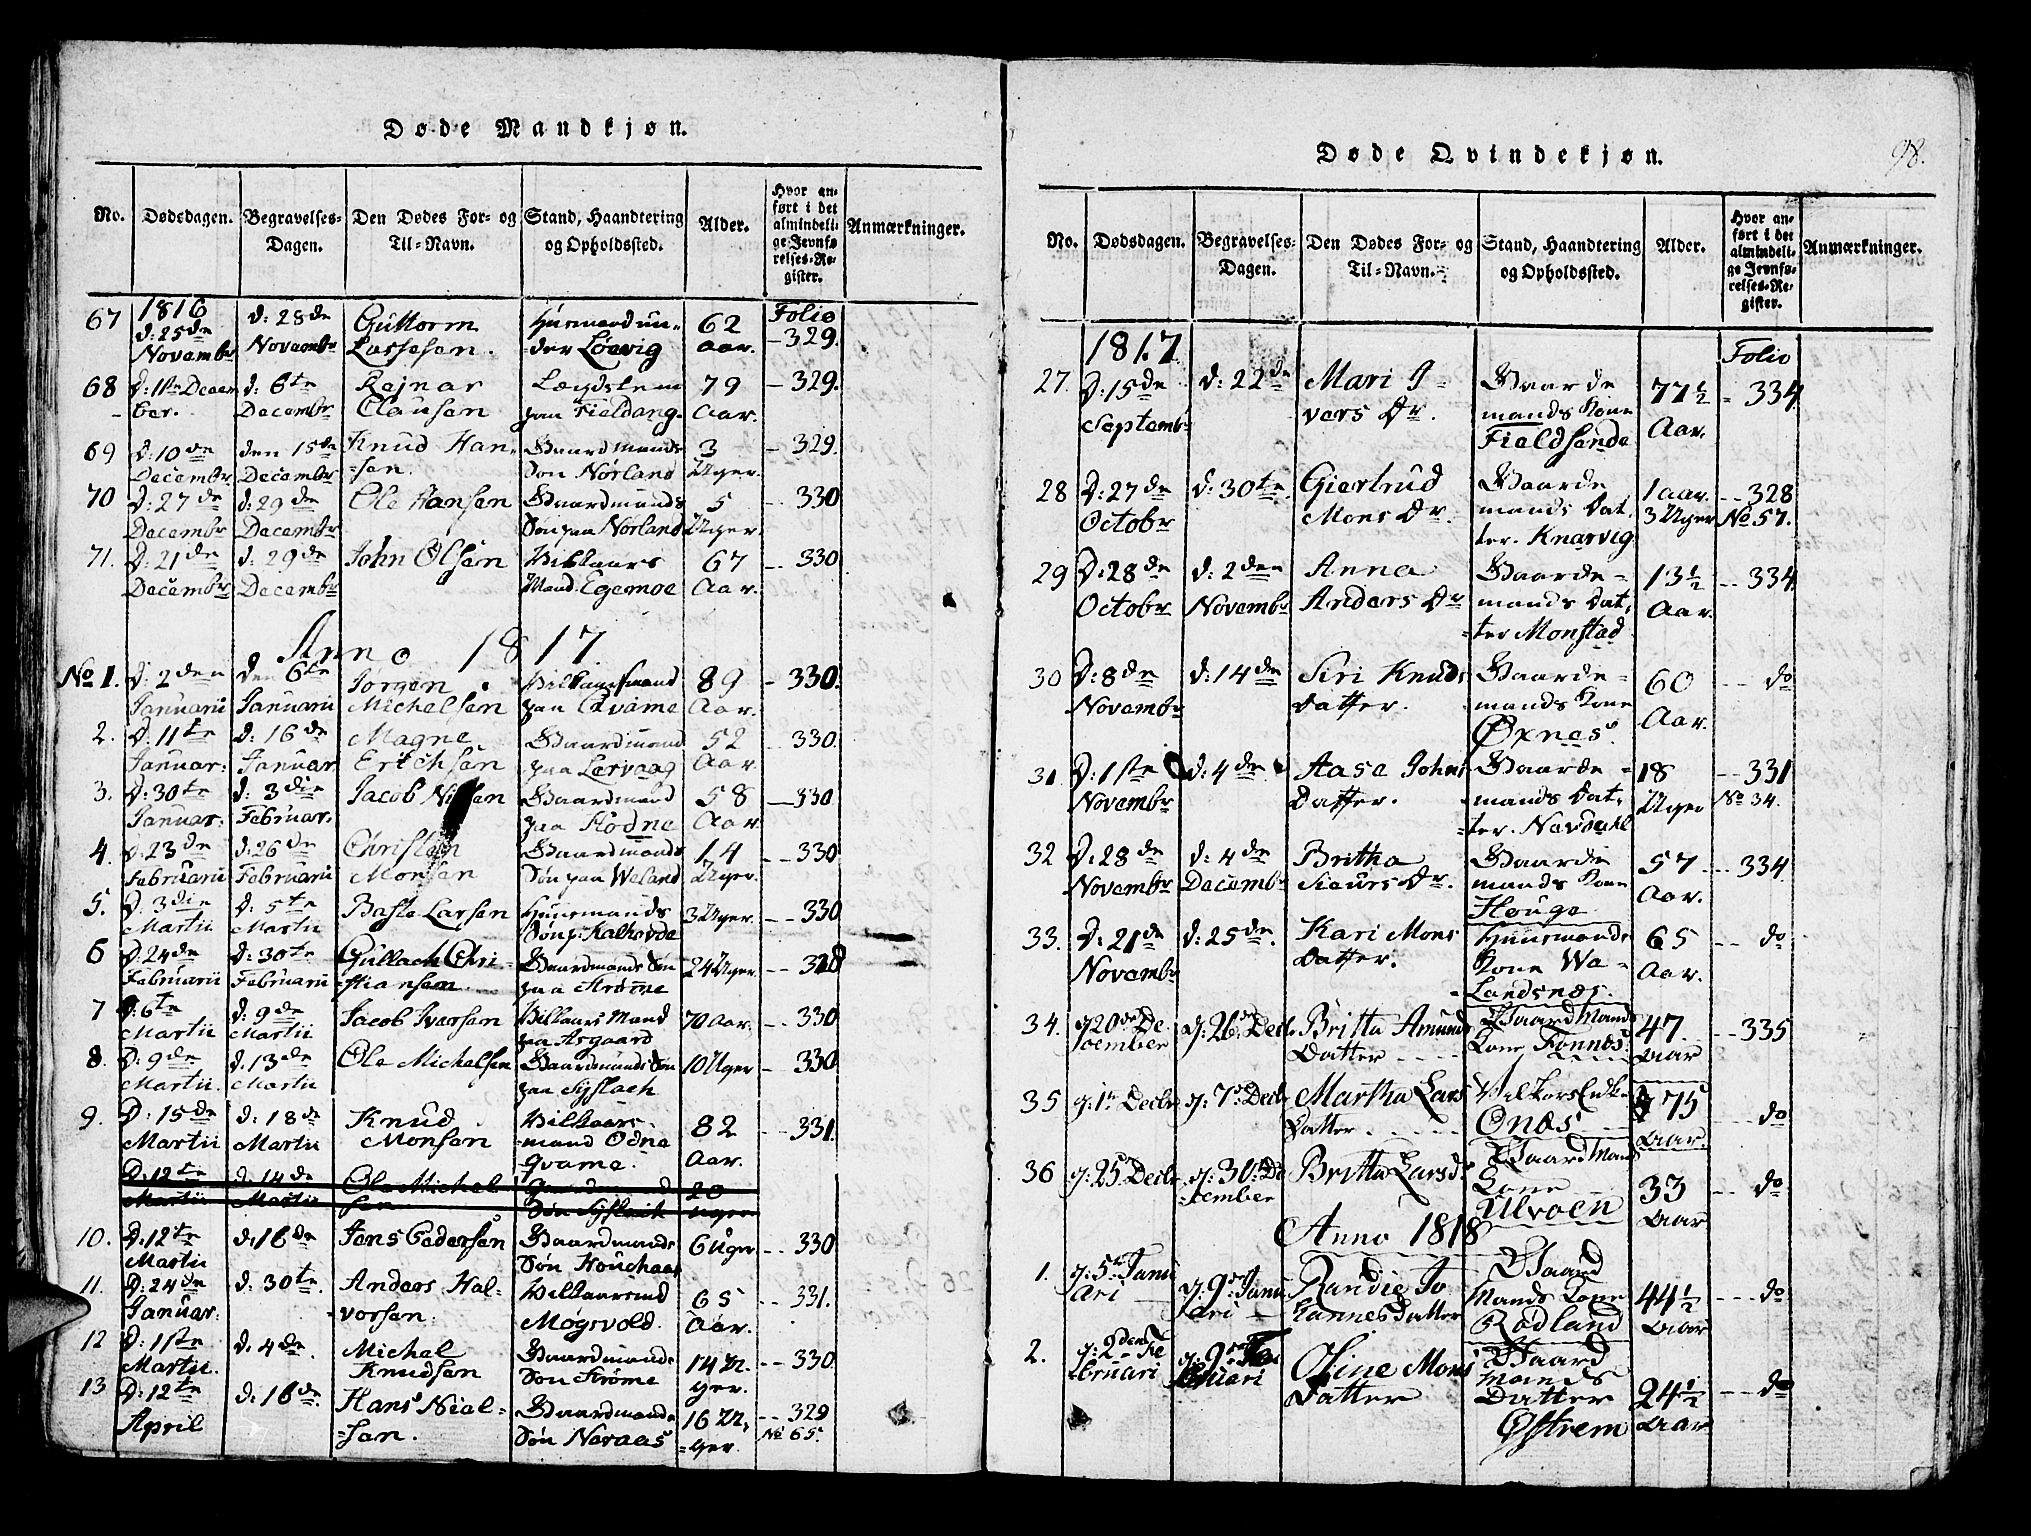 Døde Mandkjøn.
No. Dødsdagen. Begravelses-Dagen. Den Dødes For- og Til-Navn. Stand, Haandtering og Opholdssted. Alder. Hvor anført i det almindelige Jevnførelses-Register. Anmærkninger.
Folio
67 1816 d: 25de Novembr d: 28de Novembr Guttorm Lassesen. Huusmand under Löevig 62 Aar. - 329.
68 d: 1ste December. d: 6te Decembr Rejnar Clausen Lægdslem paa Fieldang. 79 Aar. - 329.
69 d: 10de Decembr den 15de Decembr Knud Hansen. Gaardmands Søn Nørland 3 Uger. - 329.
70 d: 27de Decembr d: 29de Decembr Ole Hansen Gaardmands Søn paa Nørland 5 Uger. - 330
71. d: 21de Decembr d: 29de Decembr John Olsen Vilkaars Mand. Egemoe 67 Aar. - 330
Anno 1817
No 1. d: 2den Januarii den 6te Januarii Jørgen Michelsen Vilkaarsmand paa Qvame 89 Aar. - 330.
2. d: 11te Januar: d: 16de Januar Magne Erichsen Gaardmand paa Lervaag 52 Aar. - 330.
3. d: 30te Januar: d: 3die Februar. Jacob Gaardmand paa Hodne 58 Aar. - 330
4. d: 23de Februarii d: 26de Februarii Christen Monsen Gaardmands Søn paa Weland 14 Uger. - 330
5. d: 3die Martii d: 5te Martii Baste Larsen Huusmands Søn p: 3 Uger. - 330
6 d: 24de Februarii d: 30te Februarii Gullach Christiansen. Gaardmands Søn paa Strømme 24 Uger. - 328
7 d: 6te Martii d: 9de Martii Jacob Iversen Vilkaars Mand paa Asgaard 70 Aar. - 330
8. d: 9de Martii. d: 13de Martii Ole Michelsen Gaardmands Søn paa Syslach 10 Uger - 330
9. D: 15de Martii d: 18de Martii Knud Monsen Vilkaars-mand Odne Qvame. 82 Aar. - 331.
D: 12te Martii d: 14de Martii Ole Michelsen Gaardmand Søn Syslach 20 Uger
10. D: 12te Martii d: 16de Jens Pedersen Gaardmands Søn Houchaas 6 Uger - 330
11. D: 24de Januar. d: 30te Anders Halvorsen. Vilkaarsmd Møgsvold. 65 Aar. - 331.
12 D: 1ste Martii d: 4de Michel Knudsen Gaardmands Søn Strøme 14 Uger. - 330
13 D: 12te April d: 16de Hans Nielsen. Gaardmands Søn Navaas 16 Uger. - 329 No 65.
Døde Qvindekjøn.
98.
No. Dødsdagen. Begravelses-Dagen. Den Dødes For- og Til-Navn. Stand, Haandtering og Opholdssted. Alder. Hvor anført i det almindelige Jevnførelses-Register. Anmærkninger.
1817 Folio
27. D: 15de Septembr d: 22de Mari Ivers Dr. Gaardemands Kone Fieldsende 77½ Aar. - 334
28 D: 27de Octobr d: 30te Giertrud Mons Dr. Gaardemands Datter. Knarvig 1 aar. 3 Uger - 328 No. 57.
29 D: 28de Octobr d: 2den Novembr Anna Anders Dr Gaardemands Datter Monstad 13½ Aar. - 334
30 D: 8de Novembr d: 14de Siri Knuds Datter. Gaardemands Kone Øxnes. 60 Aar. - do
31 D: 1ste Novembr d: 4de Aase Johns Datter. Gaardemands Datter. Navdahl 18 Uger - 331 No 34.
32 D: 28de Novembr d: 4de Decembr Britha Sieurs Dr. Gaardemands Kone Houge 57 Aar. - 334
33. D: 21de Novembr d: 25de. Kari Mons Datter. Huusmands Kone Walandsnæs. 65 Aar. - do
34. d 20de December d: 26de Decbr. Britta Amunds Datter Gaard Mands Kone Fonnes 47 Aar - 335
35 d: 1te Decbr d: 7de Decbr Martha Lars Datter Vilkors Enke Ones 75 Aar. - do
36 d: 25 Decbr d: 30te December Britta Larsd. Gaard Mands Kone Ulvøen 33 Aar - do
Anno 1818
1. d: 5te Januari d: 9de Januari Randie Johannesdatter Gaard Mands Kone Rødland 44½ Aar - do
2. d: 2den Februari d: 9de Februari Oline Mons Datter Gaard Mands Datter Østrem 24½ Aar - do